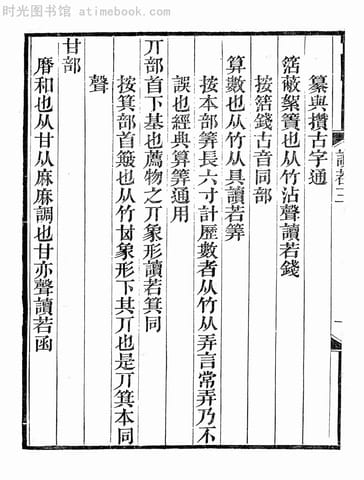 时光图书馆 - atimebook.com
讀若三
一
纂與攢古字通
蔽絮簀也从竹沾聲讀若錢
按錢古音同部
算數也从竹从具讀若筭
按本部筭長六寸計歷數者从竹从弄言常弄乃不
誤也經典算筭通用
丌部首下基也薦物之丌象形讀若箕同
按箕部首簸也从竹象形下其丌也是丌箕本同
聲
甘部
和也从甘从麻麻調也甘亦聲讀若函